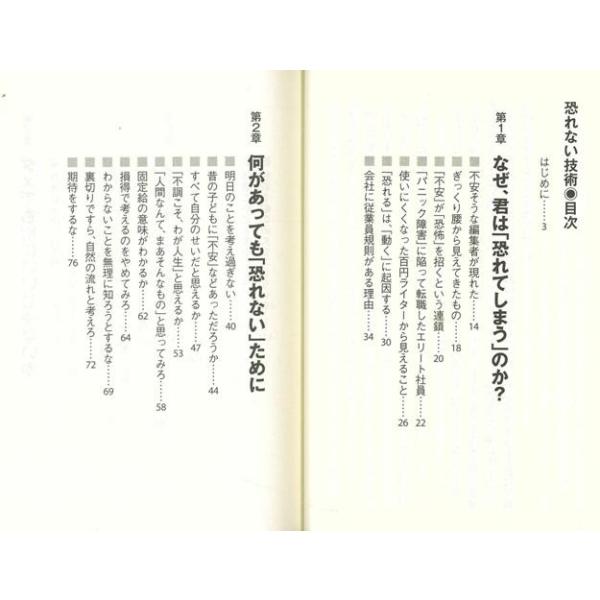 恐れない技術◉目次
はじめに……3
第1章 なぜ、君は「恐れてしまう」のか?
不安そうな編集者が現れた……14
ぎっくり腰から見えてきたもの……18
「不安」が「恐怖」を招くという連鎖……20
「パニック障害」に陥って転職したエリート社員……22
使いにくくなった百円ライターから見えること……26
「恐れる」は、「動く」に起因する……30
会社に従業員規則がある理由……34
第2章 何があっても「恐れない」ために
明日のことを考え過ぎない……40
昔の子どもに「不安」などあっただろうか……44
すべて自分のせいだと思えるか……47
「不調こそ、わが人生」と思えるか……53
「人間なんて、まあそんなもの」と思ってみろ……58
固定給の意味がわかるか……62
損得で考えるのをやめてみろ……64
わからないことを無理に知ろうとするな……69
裏切りですら、自然の流れと考えろ……72
期待をするな……76